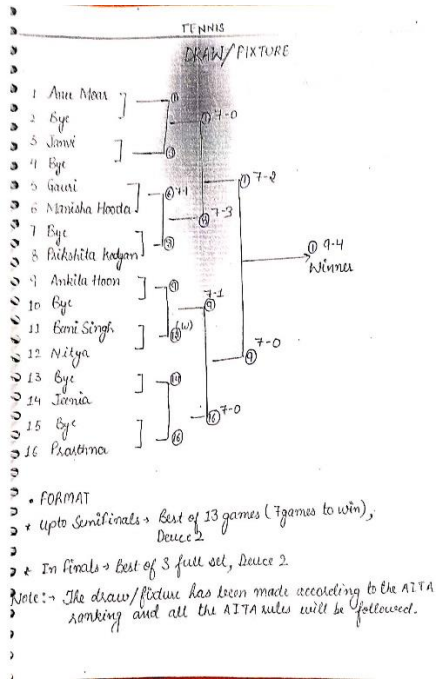 TENNIS
DRAW/FIXTURE
1 Anu Moar
2 Bye
3 Janvi
4 Bye
5 Gauri
6 Manisha Hooda
7 Bye
8 Prikshita Kadyan
9 Ankita Hoon
10 Bye
11 Bani Singh
12 Nitya
13 Bye
14 Jeenia
15 Bye
16 Prarthna
1
3
1 7-0
6 7-1
8
7-3
1 7-2
9
12 (W)
9 7-1
14
16
16 7-0
9 7-0
1 9-4
Winner
• FORMAT
* Upto Semifinals → Best of 13 games (7games to win),
Deuce 2
* In Finals → Best of 3 full set, Deuce 2
Note:→ The draw/fixture has been made according to the AITA
ranking and all the AITA rules will be followed.